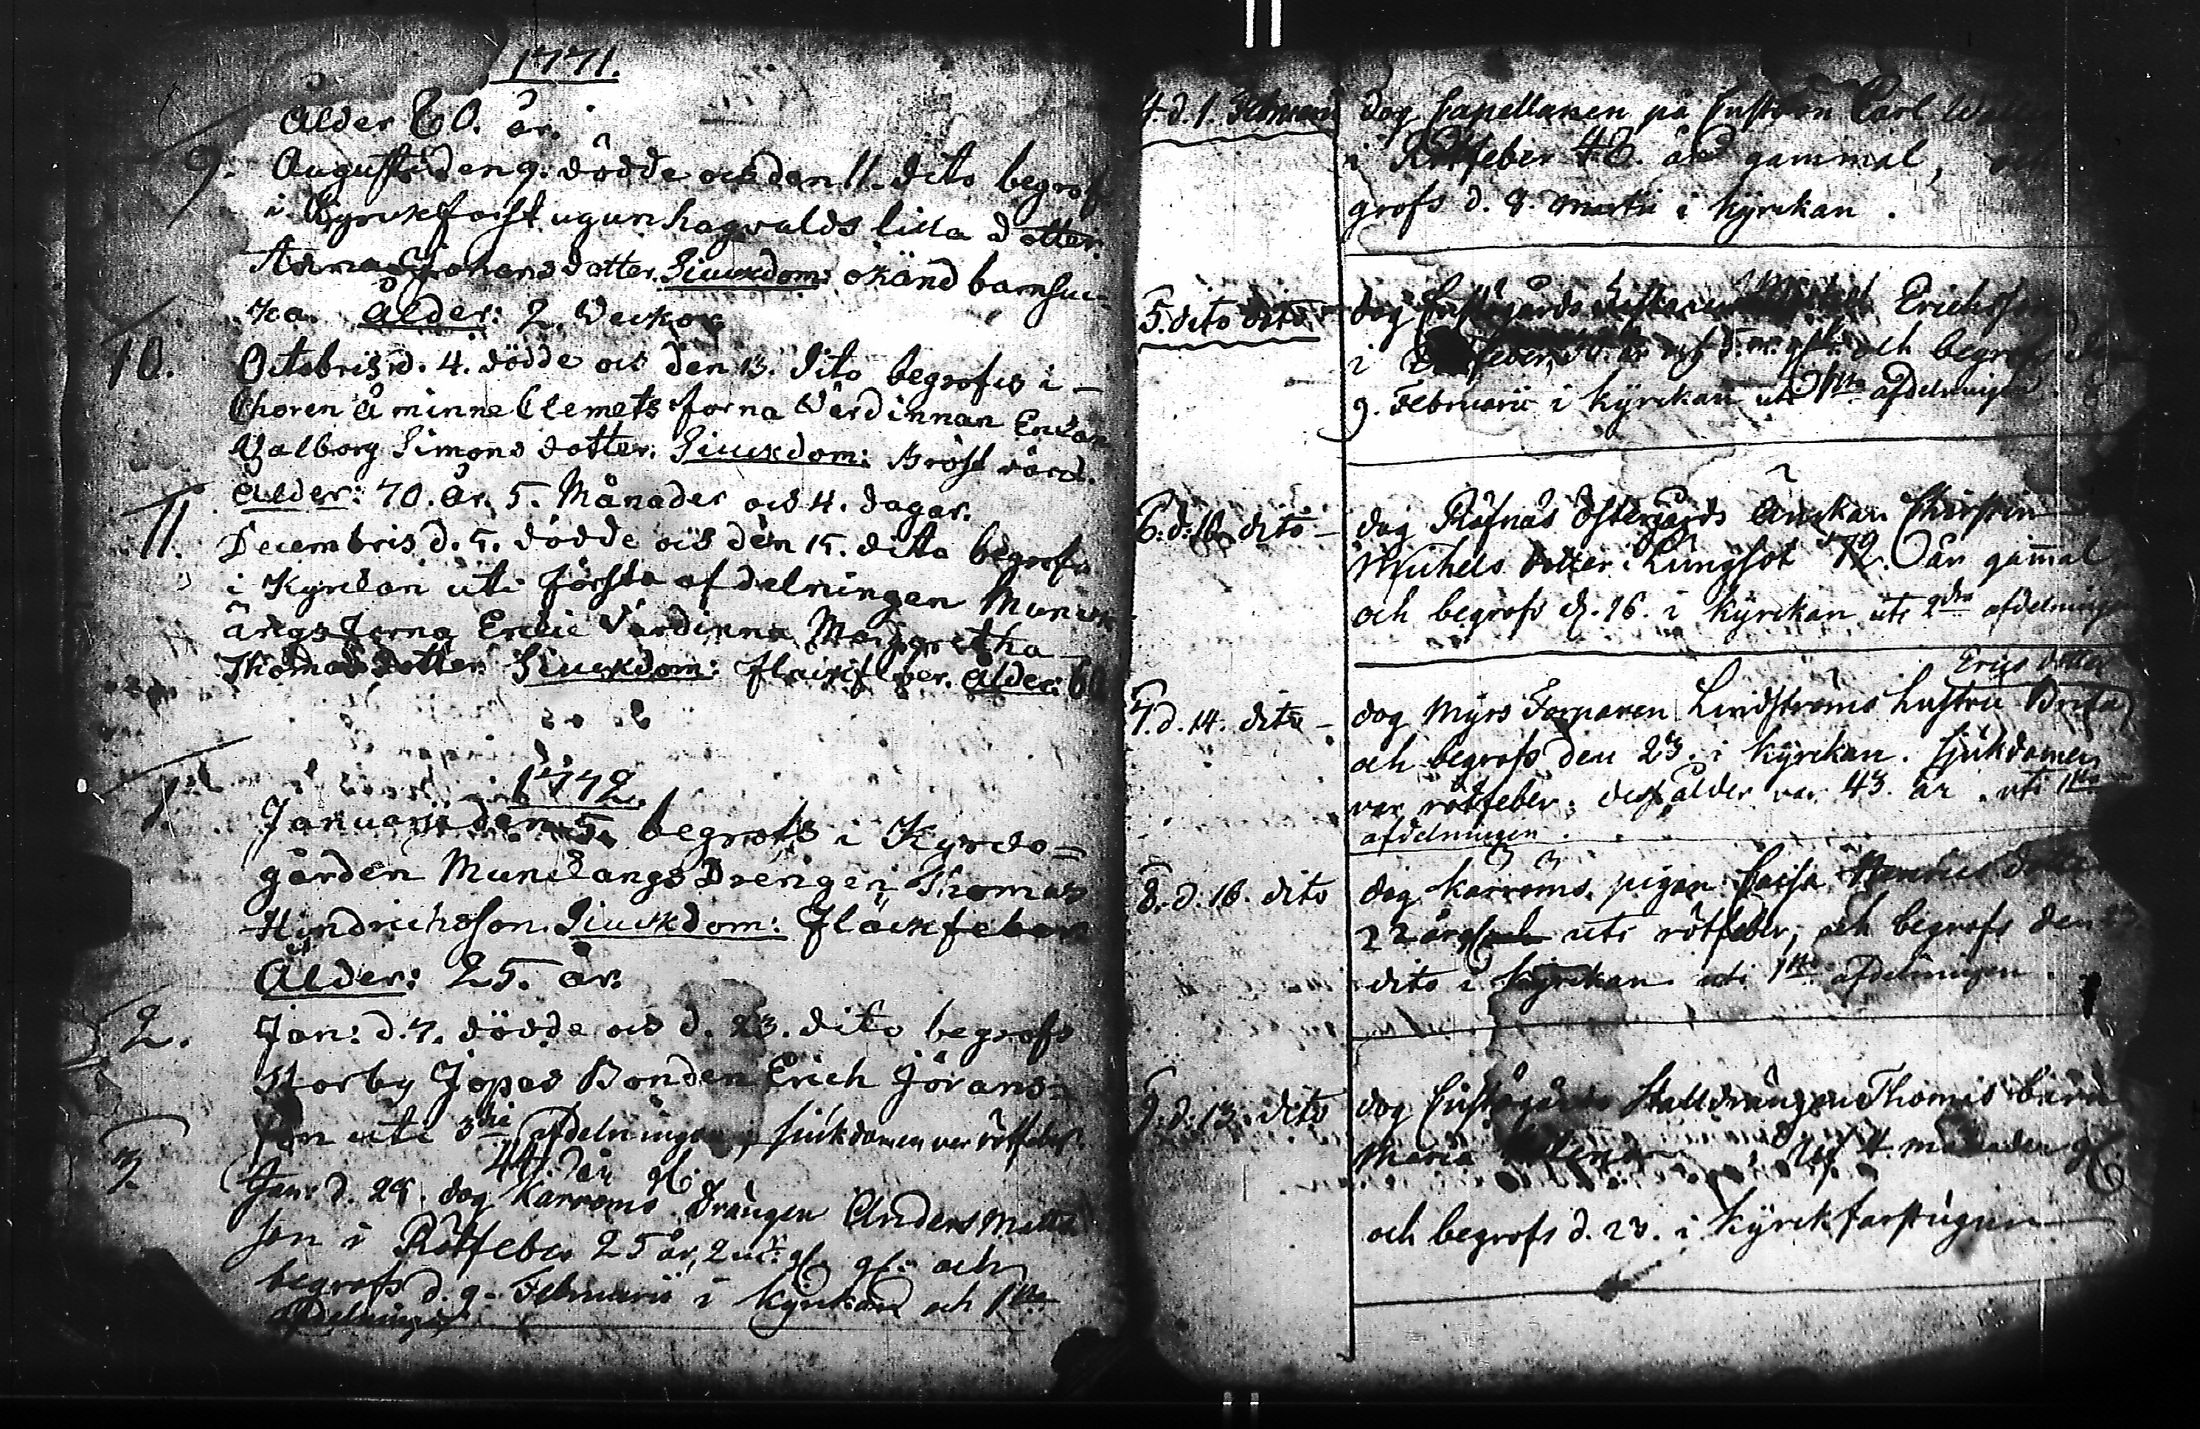 1771.
Ålder 60. år.
9. Augusti den 9. dödde och den 11. dito begrof
i Kyrckforstugun hagvalds lilla dotter
Anna Johansdotter. Siuckdom: okänd barnsiu=
ka. Ålder: 2. Veckor
10. Octobris d. 4. dödde och den 13. dito begrofvs i
Choren Åminne Clemets forna Värdinnan Enckan
Valborg Simons dotter. Siuckdom: Bröst värck.
Ålder: 70. år. 5. Månader och 4. dagar.
11. Decembris d. 5. dödde och den 15. ditto begrofs
i Kyrckan uti första afdelningen Munck
ängs forna Enckie Värdinna Margretha
Thomas dotter. Siuckdom: fläckfeber. Ålder: 60
1772.
1. Januarii den 5. begrofs i Kyrcko=
gården Munckängs Drengen Thomas
Hindrichsson. Siuckdom: Fläckfeber
Ålder: 25. år.
2. Jan: d. 7. dödde och d. 23. dito begrofs
Storby Jopas Bonden Erich Jörans=
son uti 3die afdelningen, siukdomen var rötfeber.
44. år gl.
3. Jan: d. 29. dog Karroms Drängen Anders Matts
son i Rötfeber 25 år, gl: och
begrofs d. 9. Februarii i Kyrckan och 1sta
afdelningen
4. d. 1. Februarii dog Capellanen på Carl
i Rötfeber 48. år gammal,
grofs d. 8. Martii i kyrckan.
5. dito dito dog Erichsson
i feber, och begrofs
9. Februarii i kyrckan uti 1sta afdelningen.
6. d. 10. dito dog Räfnäs Östergårds Änckan Christin
Michels dotter i Lungsot 72. år gammal
och begrofs d. 16. i kyrckan uti 2dra afdelningen
Erics dotter
7. d. 14. dito dog Myrs Torparen Lindströms hustru Brita
och begrofs den 23. i kyrckan. sjukdomen
var rötfeber. dess ålder var 43 år. uti 1sta
afdelningen.
8. d. 16. dito dog Karroms pigan Caisa Henrics dotter
22 år uti rötfeber, och begrofs den
dito i kyrckan uti 1sta afdelningen.
9. d. 13. dito dog Stalldrängen Thomas barn
Maria 4. månader gl.
och begrofs d. 23. i kyrckfarstugun